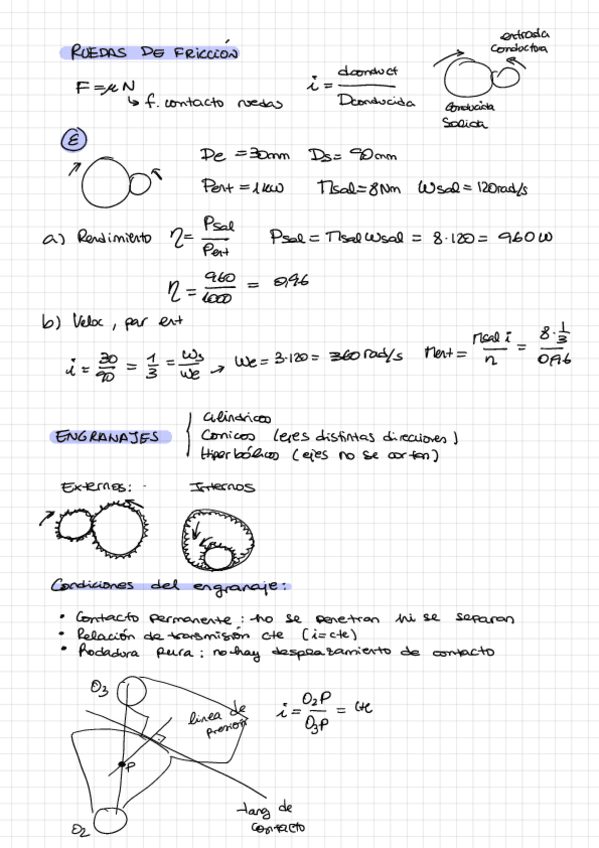 RUEDAS DE FRICCIÓN
entrada
conductora
F = μ N
↳ f. contacto ruedas
i = dconduct / Dconducida
Conducida
Salida
E
De = 30mm Ds = 90mm
Pent = 1 kW Msal = 8Nm Wsal = 120rad/s
a) Rendimiento η = Psal / Pent Psal = Msal Wsal = 8·120 = 960 W
η = 960 / 1000 = 0,96
b) Veloc, par ent
i = 30/90 = 1/3 = Ws/We → We = 3·120 = 360 rad/s Ment = Msal i / η = 8·1/3 / 0,96
ENGRANAJES
Cilíndricos
Conicos (ejes distintas direciones)
Hiperbólicos (ejes no se cortan)
Externos: Internos
Condiciones del engranaje:
• Contacto permanente: no se penetran ni se separan
• Relación de transmisión cte (i=cte)
• Rodadura pura: no hay desplazamiento de contacto
O3
linea de
presion
i = O2P / O3P = cte
P
O2
tang de
contacto